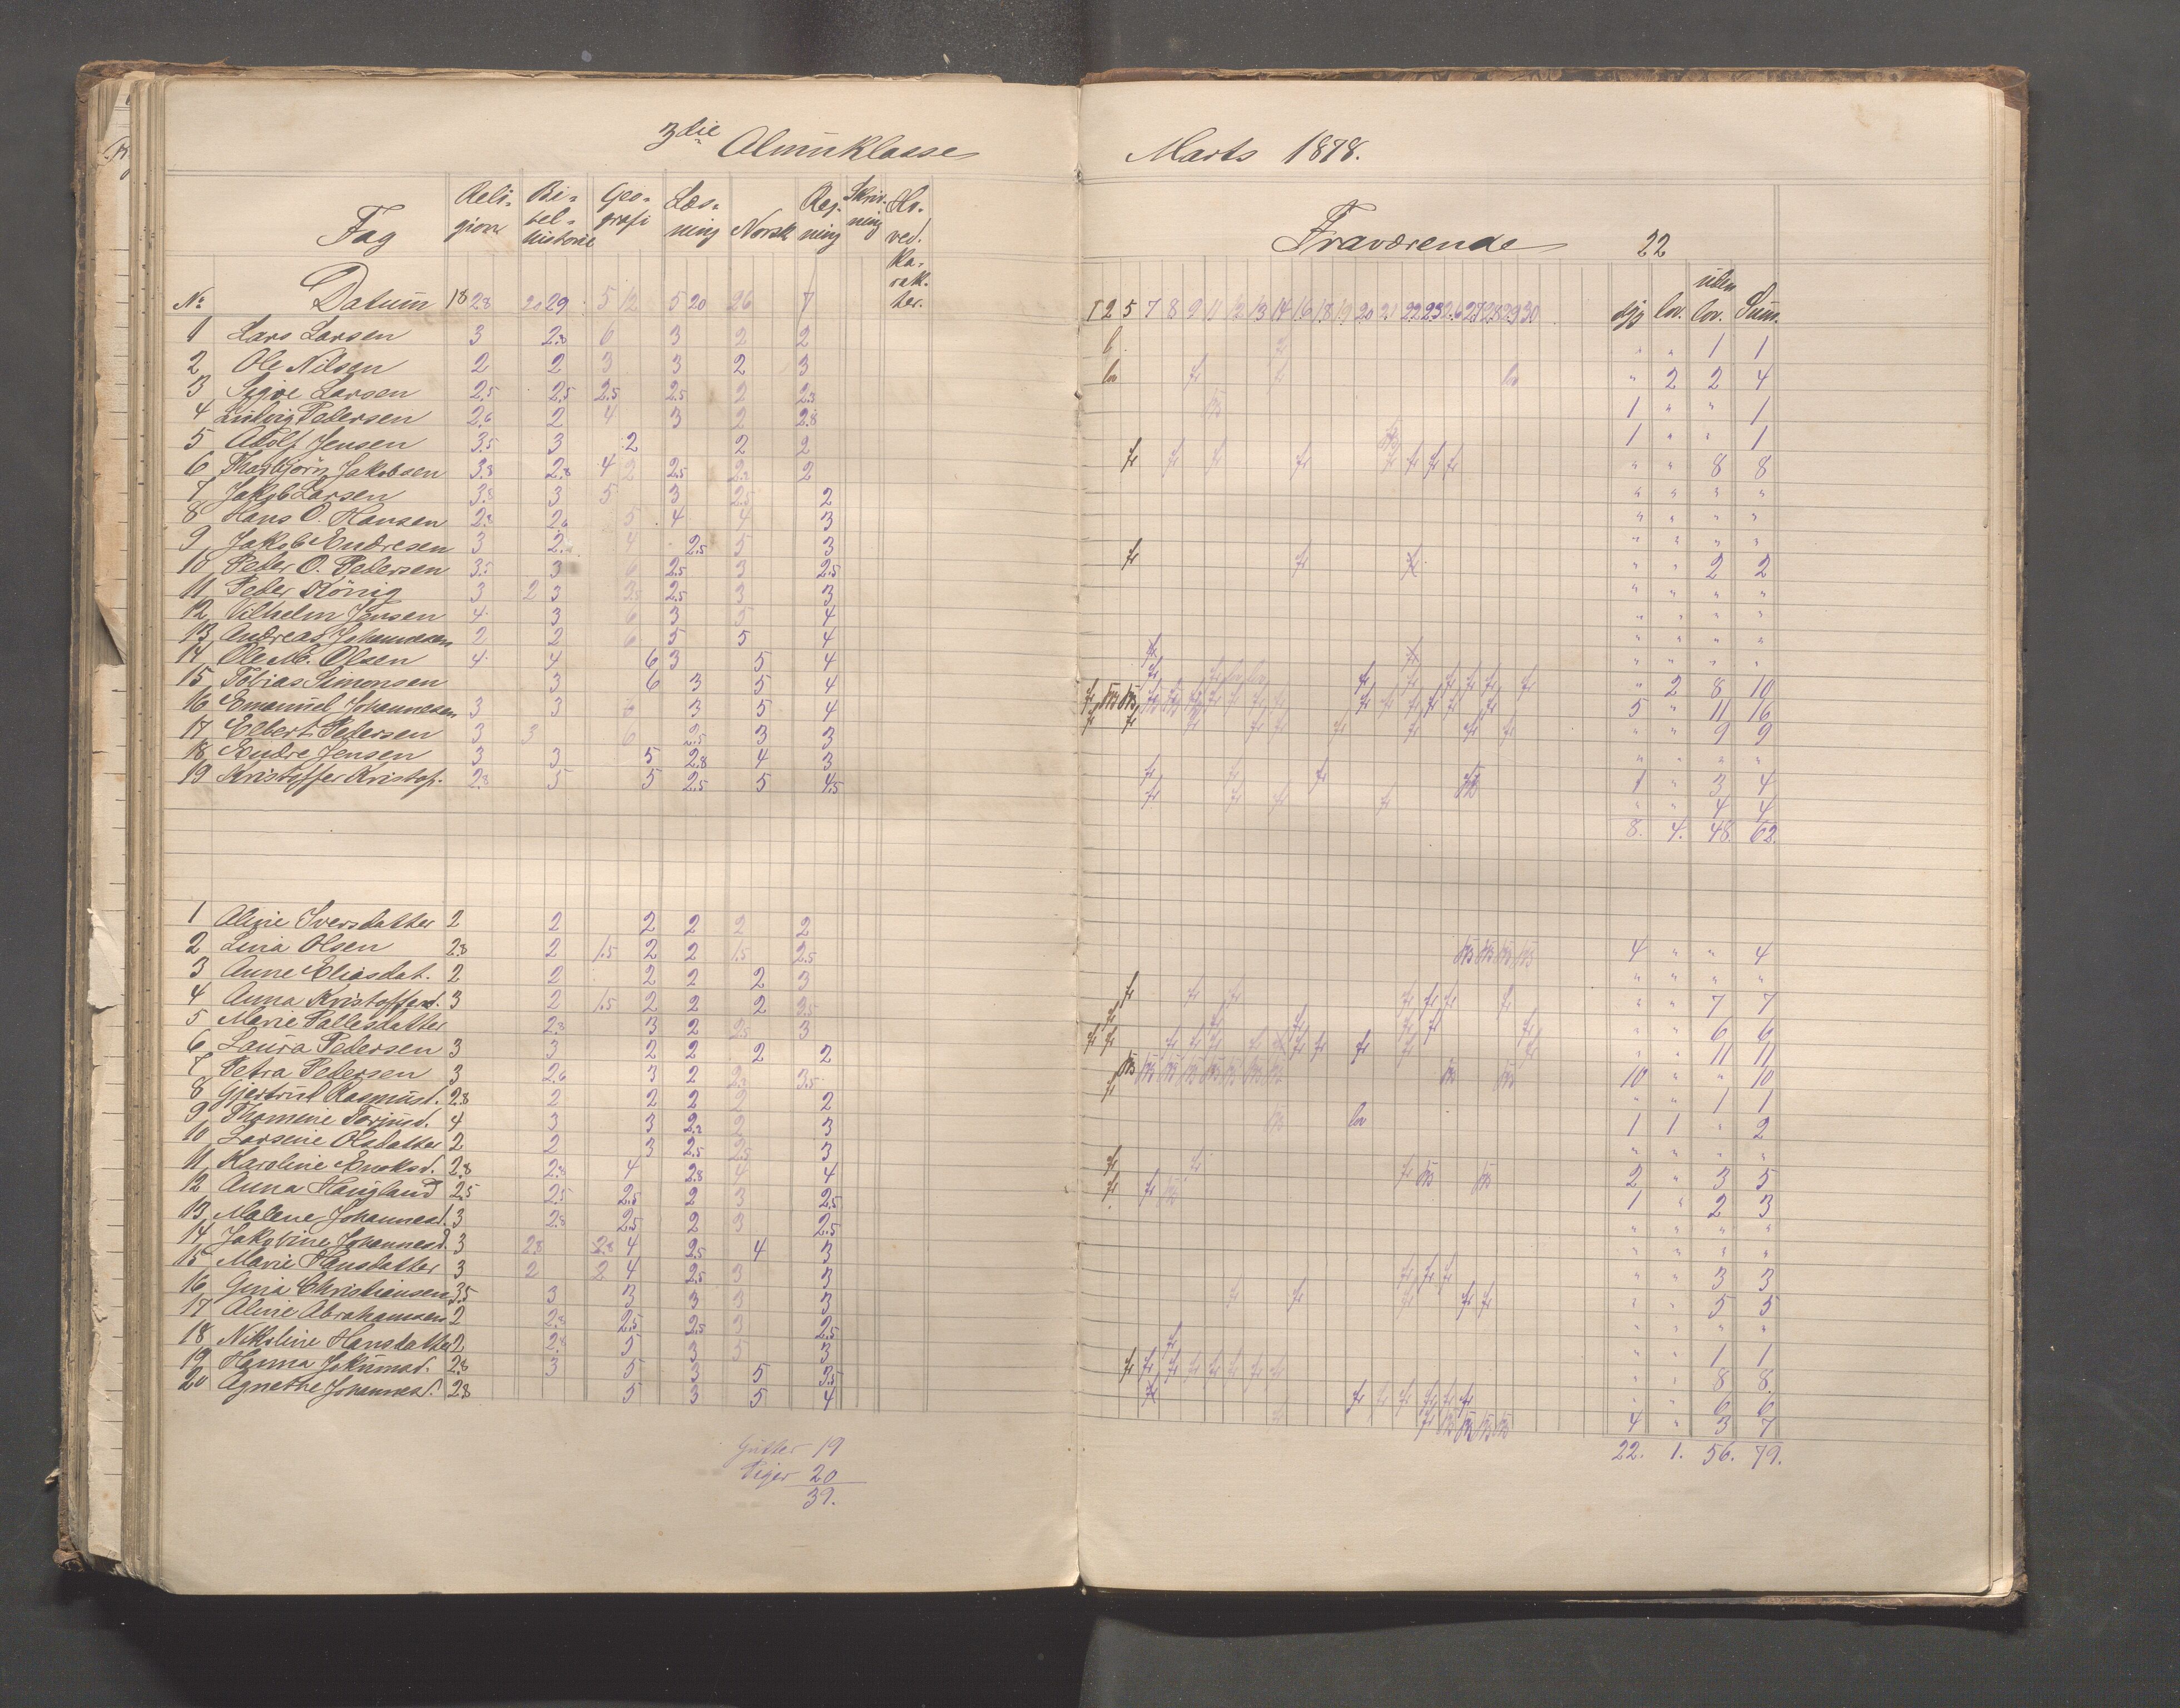 3die Almuklasse
Fag Religion Bibelhistorie Geografi Læsning Norsk Regning Skrivning Hovedkarakter.
No Datum 18 28 20 29 5 12 5 20 26 7
1 Lars Larsen 3 2.8 6 3 2 2
2 Ole Nilsen 2 2 3 3 2 3
3 Sigve Larsen 2.5 2.5 2.5 2.5 2 2.3
4 Ludvig Pedersen 2.6 2 4 3 2 2.8
5 Adolf Jensen 3.5 3 2 2 2
6 Thorbjörn Jakobsen 3.8 2.8 4 2 2.5 2.3 2
7 Jakob Larsen 3.8 3 5 3 2.5 2
8 Hans O. Hansen 2.8 2.6 5 4 4 3
9 Jakob Endresen 3 2. 4 2.5 5 3
10 Peder O. Pedersen 3.5 3 6 2.5 3 2.5
11 Peder König 3 2 3 3.5 2.5 3 3
12 Vilhelm Jensen 4 3 6 3 5 4
13 Andreas Johannesen 2 2 6 5 5 4
14 Ole M. Olsen 4 4 6 3 5 4
15 Tobias Simonsen 3 6 3 5 4
16 Emanuel Johannesen 3 3 6 3 5 4
17 Elbert Pedersen 3 3 6 2.5 3 3
18 Endre Jensen 3 3 5 2.8 4 3
19 Kristoffer Kristof. 2.8 5 5 2.5 5 4.5
1 Aline Iversdatter 2 2 2 2 2 2
2 Lina Olsen 2.8 2 1.5 2 2 1.5 2.5
3 Anne Eliasdat. 2 2 2 2 2 3
4 Anna Kristoffersd. 3 2 1.5 2 2 2 3.5
5 Marie Pallesdatter 2.8 3 2 2.5 3
6 Laura Pedersen 3 3 2 2 2 2
7 Petra Pedersen 3 2.6 3 2 2.3 3.5
8 Gjertrud Rasmusd. 2.8 2 2 2 2 2
9 Thomine Torjusd. 4 3 3 2.2 2 3
10 Larsine Olsdatter 2 2 3 2.5 2.5 3
11 Karoline Enoksd. 2.8 2.8 4 2.8 4 4
12 Anna Haugland 2.5 2.5 2.5 2 3 2.5
13 Malene Johannesd. 3 2.8 2.5 2 3 2.5
14 Jakobine Johannesd. 3 2.8 2.8 4 2.5 4 3
15 Marie Hansdatter 3 2 2 4 2.5 3 3
16 Gina Christiansen 3.5 3 3 3 3 3
17 Aline Abrahamsen 2 2.8 2.5 2.5 3 2.5
18 Nikoline Hansdatter 2 2.8 5 3 5 3
19 Hanna Jokumsd. 2.8 3 5 3 5 3.5
20 Agnethe Johannesd. 2.8 5 3 5 4
Gutter 19
Piger 20
39.
Marts 1878.
Fraværende 22
1 2 5 7 8 9 11 12 13 14 16 18 19 20 21 22 23 26 27 28 29 30 syg lov. uden lov. Sum.
l fr " " 1 1
lov fr fr lov " 2 2 4
syg 1 " " 1
syg 1 " " 1
fr fr fr fr fr fr fr fr " " 8 8
" " " "
" " " "
" " " "
fr fr fr " " 2 2
" " " "
" " " "
" " " "
fr fr " " " "
fr fr lov lov fr fr fr fr fr fr " 2 8 10
5 " 11 16
" " 9 9
" " " "
fr fr fr syg 1 " 3 4
fr fr fr fr " " 4 4
8. 4. 48. 62.
syg syg syg syg 4 " " 4
" " " "
fr fr fr fr fr fr fr " " 7 7
fr fr fr fr fr fr " " 6 6
" " 11 11
10 " " 10
fr " " 1 1
syg lov 1 1 " 2
" " " "
fr fr fr syg syg 2 " 3 5
fr fr syg 1 " 2 3
" " " "
" " " "
fr fr fr " " 3 3
fr fr fr fr fr " " 5 5
" " " "
fr " " 1 1
fr fr fr fr fr fr fr fr " " 8 8
fr fr fr fr fr fr fr " " 6 6
4 " 3 7
22. 1. 56. 79.